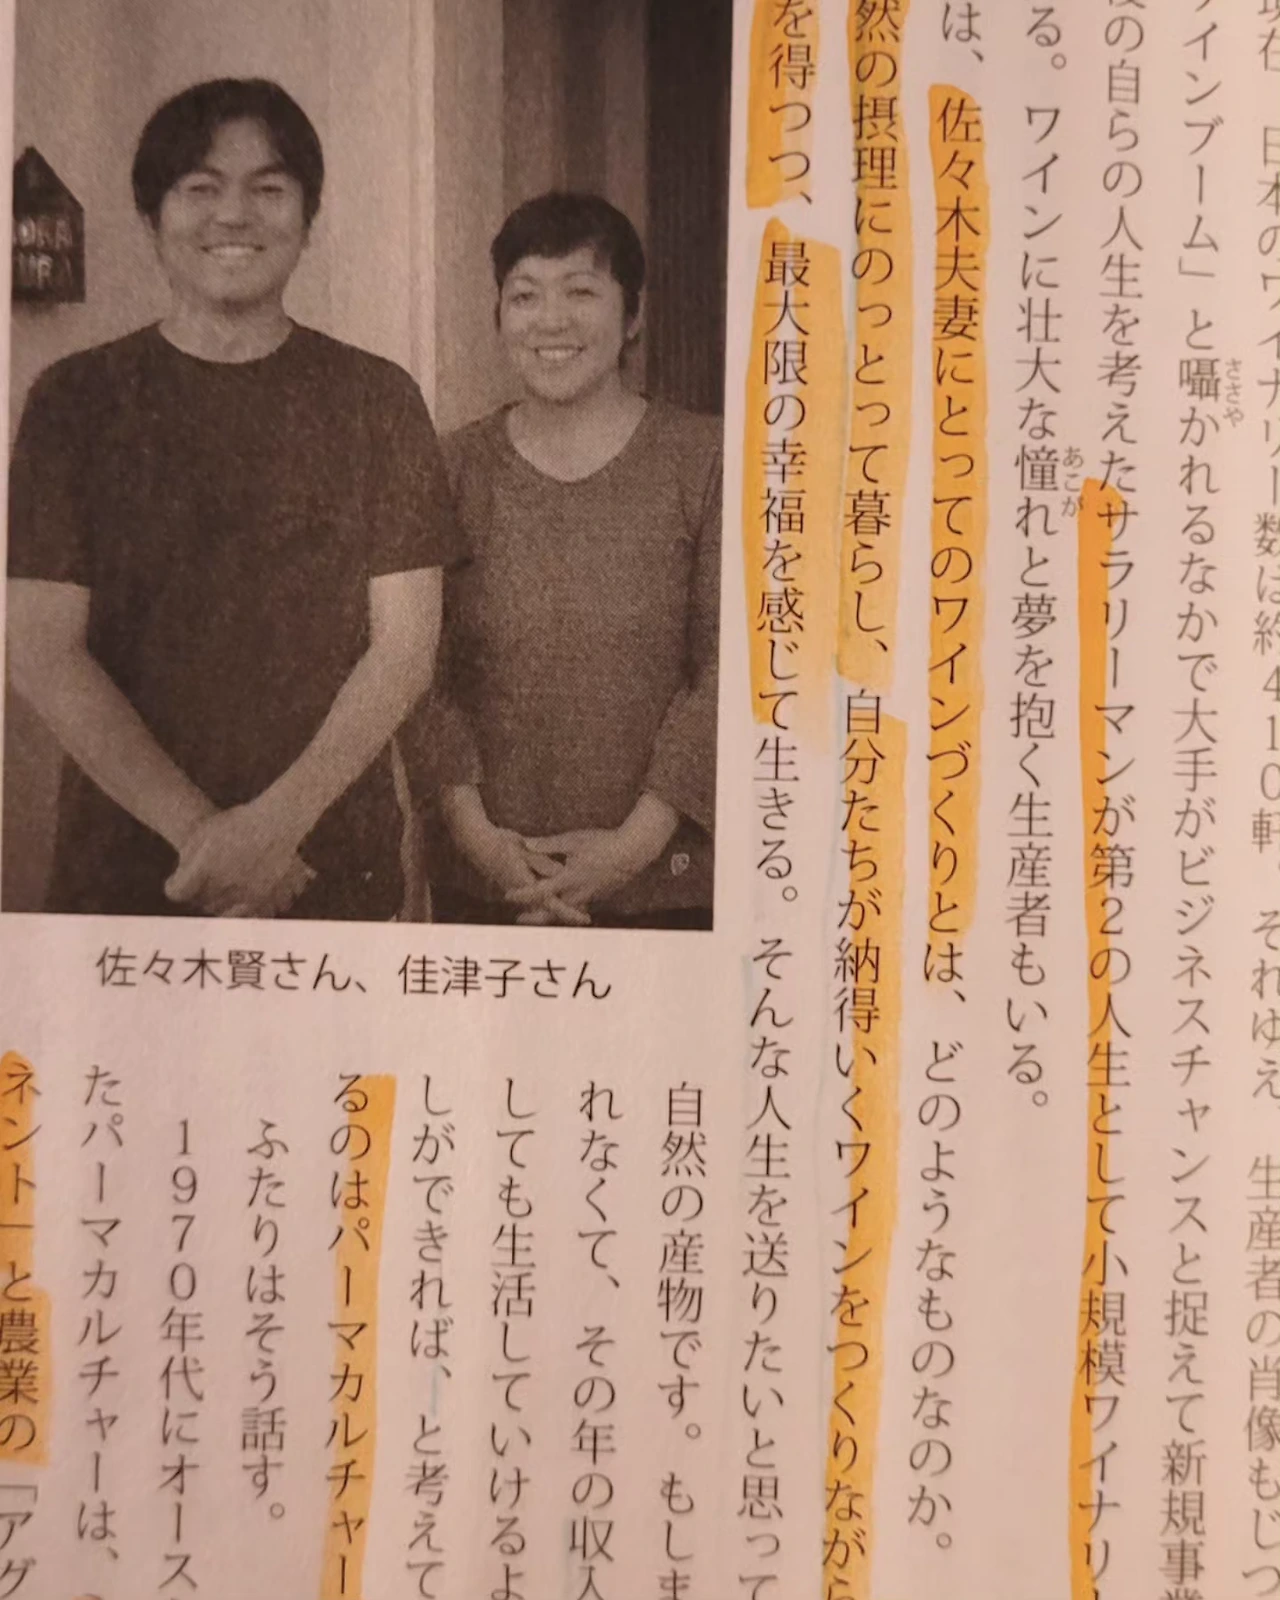 現在、日本のワイナリー数は約410軒。それゆえ、生産者の肖像もじつ
インブーム」と囁かれるなかで大手がビジネスチャンスと捉えて新規事業
ささや
の自らの人生を考えたサラリーマンが第2の人生として小規模ワイナリー
る。ワインに壮大な憧れと夢を抱く生産者もいる。
あこが
は、佐々木夫妻にとってのワインづくりとは、どのようなものなのか。
然の摂理にのっとって暮らし、自分たちが納得いくワインをつくりながら
を得つつ、最大限の幸福を感じて生きる。そんな人生を送りたいと思って
佐々木賢さん、佳津子さん
自然の産物です。もしま
れなくて、その年の収入
しても生活していけるよ
しができれば、と考えて
るのはパーマカルチャー
ふたりはそう話す。
1970年代にオース
たパーマカルチャーは、
ネント」と農業の「アグ